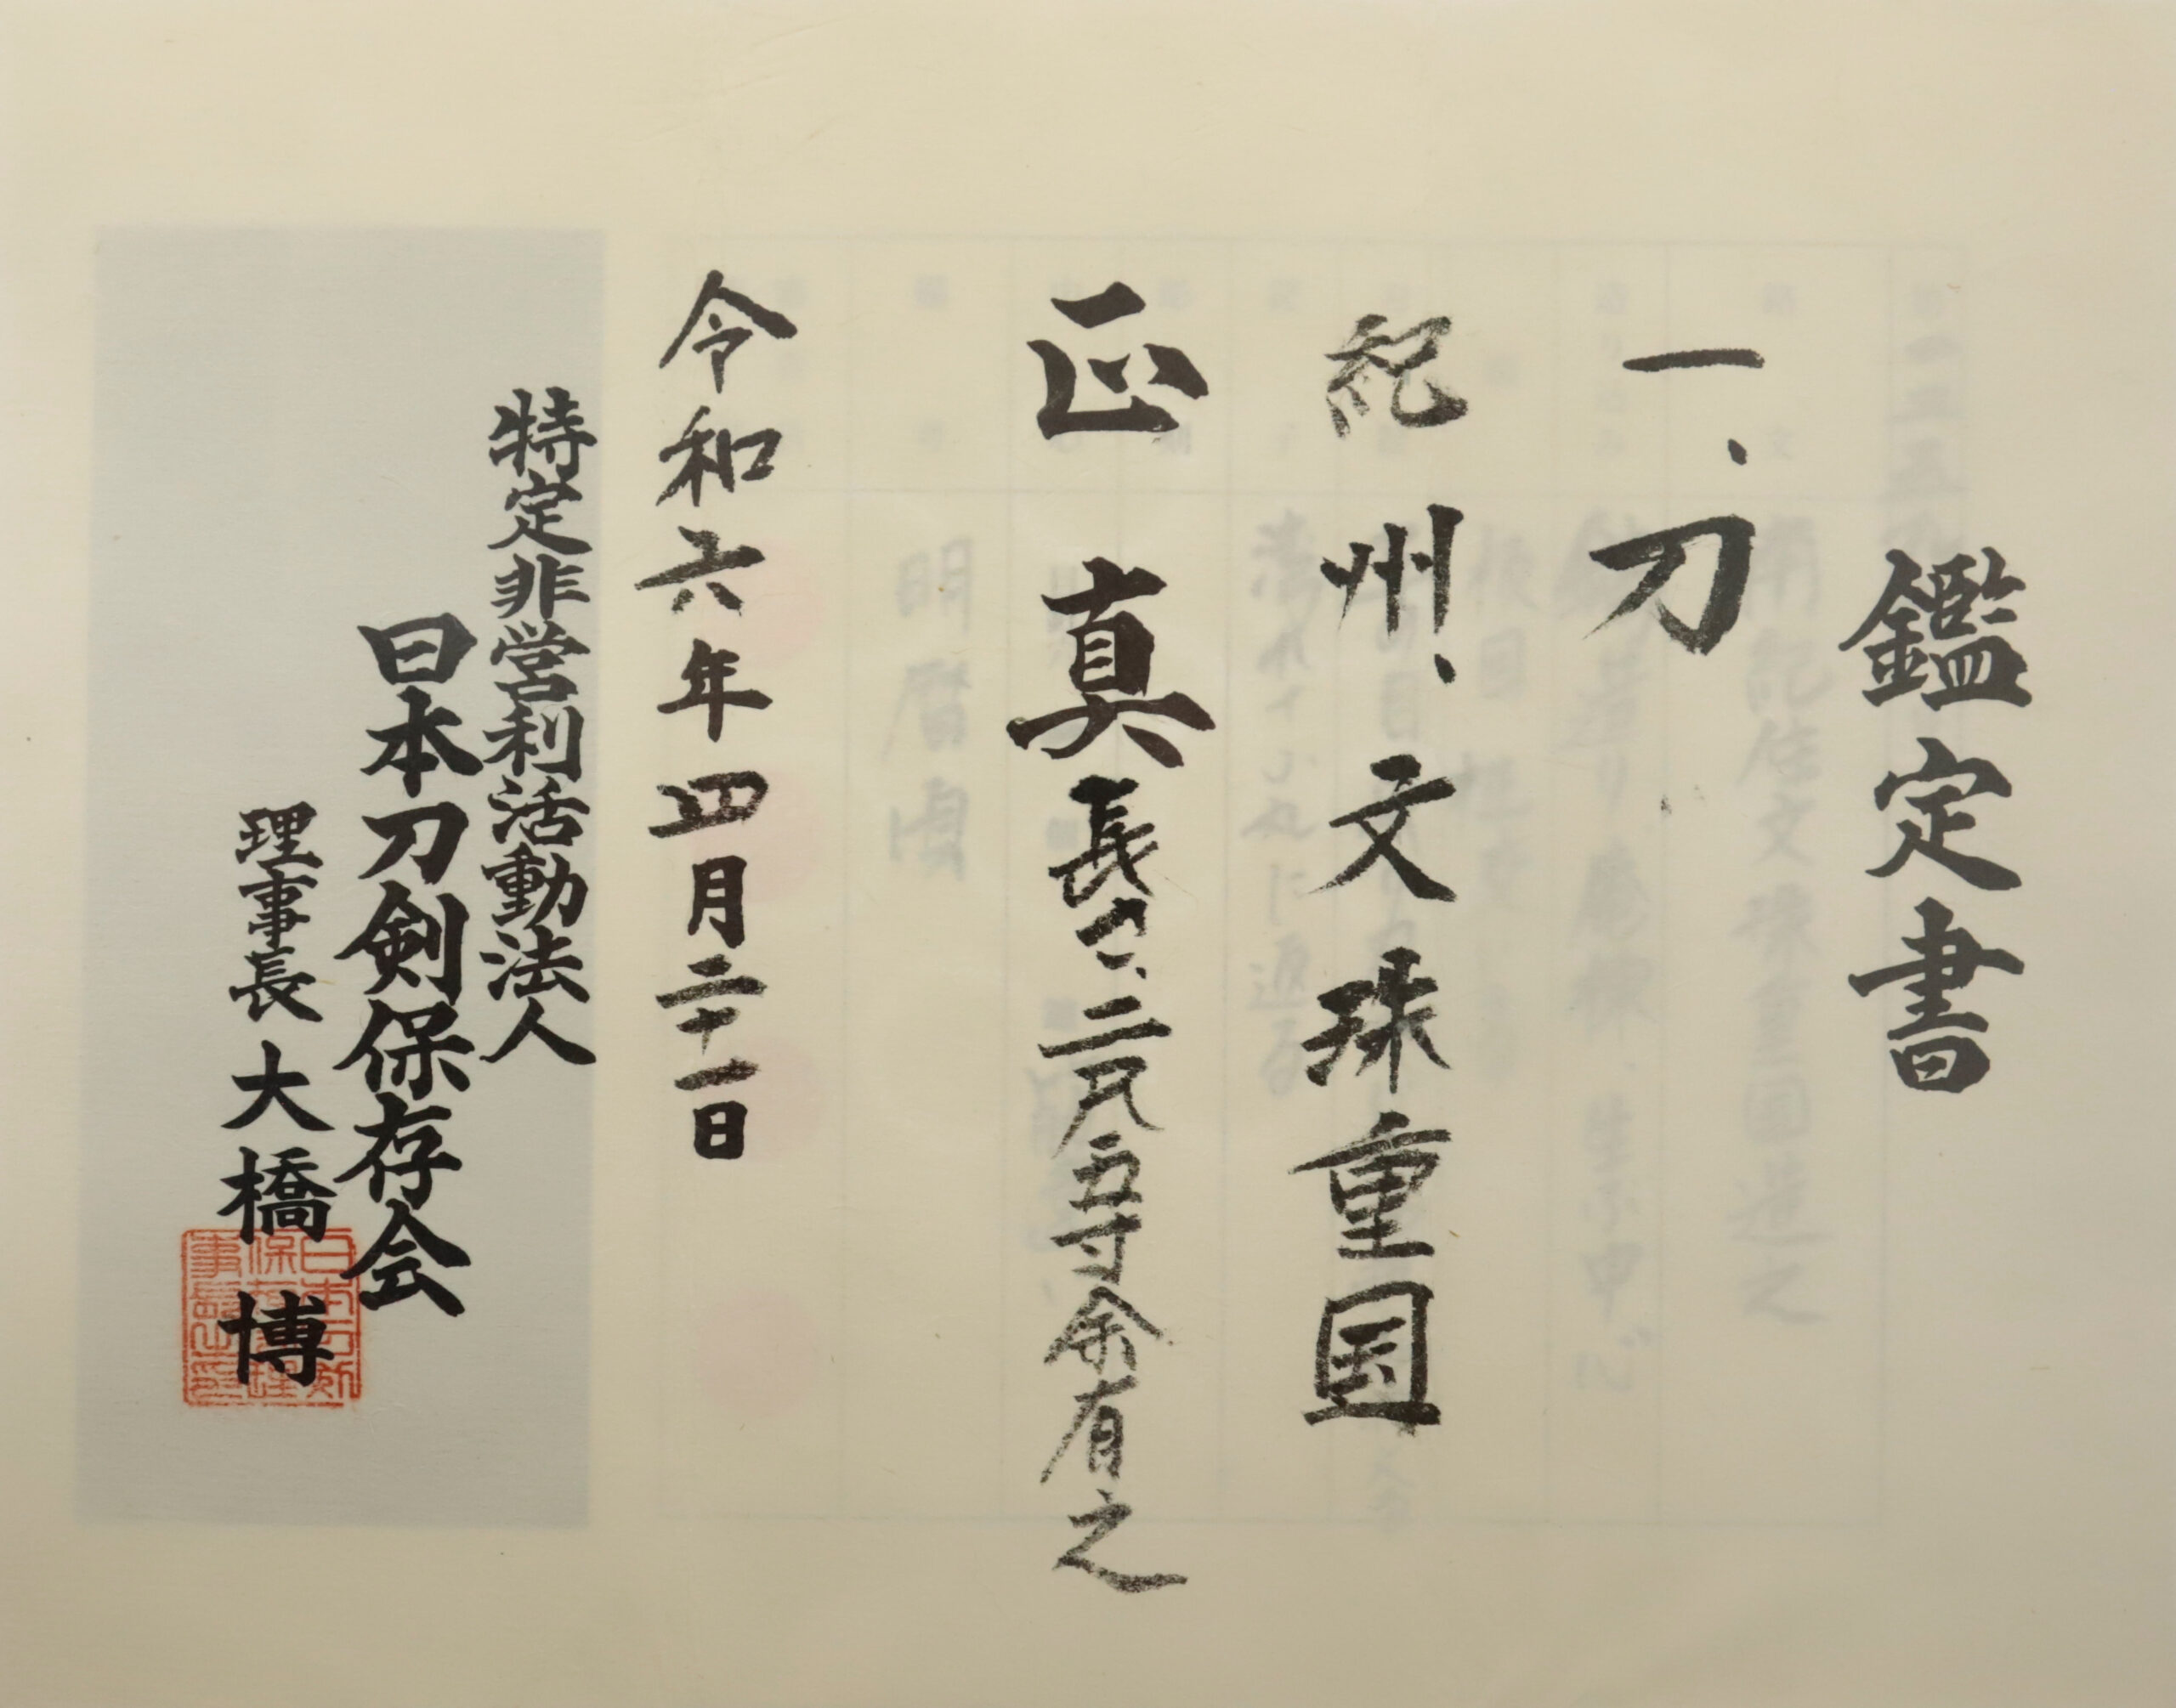 鑑定書
一、刀
紀州、文珠重国
正真長さ、二尺五寸余有之
令和六年四月二十一日
特定非営利活動法人
日本刀剣保存会
理事長大橋博